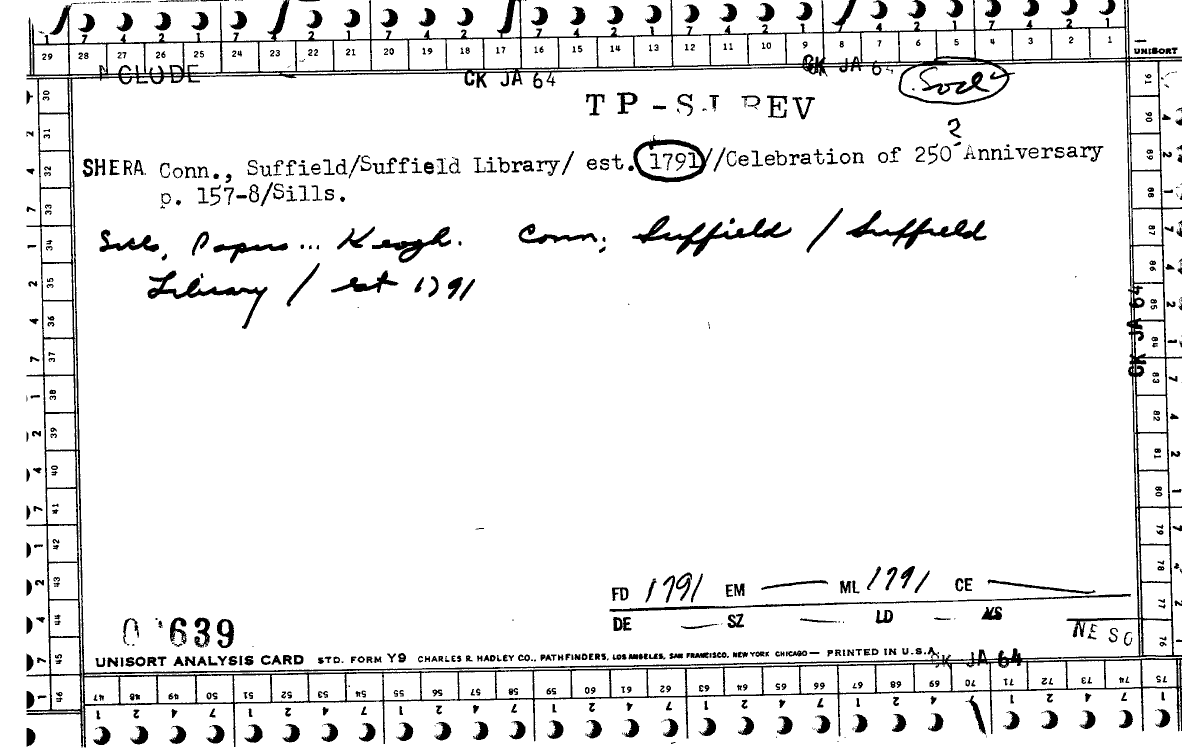 7 4 2 1 7 4 2 1 7 4 2 1 7 4 2 1 7 4 2 1 7 4 2 1 7 4 2 1
29 28 27 26 25 24 23 22 21 20 19 18 17 16 15 14 13 12 11 10 9 8 7 6 5 4 3 2 1
UNISORT
CLUDE CK JA 64 CK JA 64
TP - SJ REV
?
SHERA Conn., Suffield/Suffield Library/ est. 1791//Celebration of 250 Anniversary
p. 157-8/Sills.
Sills, Papers... Keogh. Conn., Suffield / Suffield
Library / est 1791
CK JA 64
FD 1791 EM — ML 1791 CE —
DE — SZ — LD — MS
NE SO
0 639
UNISORT ANALYSIS CARD STD. FORM Y9 CHARLES R. HADLEY CO., PATHFINDERS, LOS ANGELES, SAN FRANCISCO, NEW YORK CHICAGO — PRINTED IN U.S.A.
CK JA 64
30 31 32 33 34 35 36 37 38 39 40 41 42 43 44 45 46
47 48 49 50 51 52 53 54 55 56 57 58 59 60 61 62 63 64 65 66 67 68 69 70 71 72 73 74 75
1 2 4 7 1 2 4 7 1 2 4 7 1 2 4 7 1 2 4 7 1 2 4 7 1 2 4 7 1
91 90 89 88 87 86 85 84 83 82 81 80 79 78 77 76